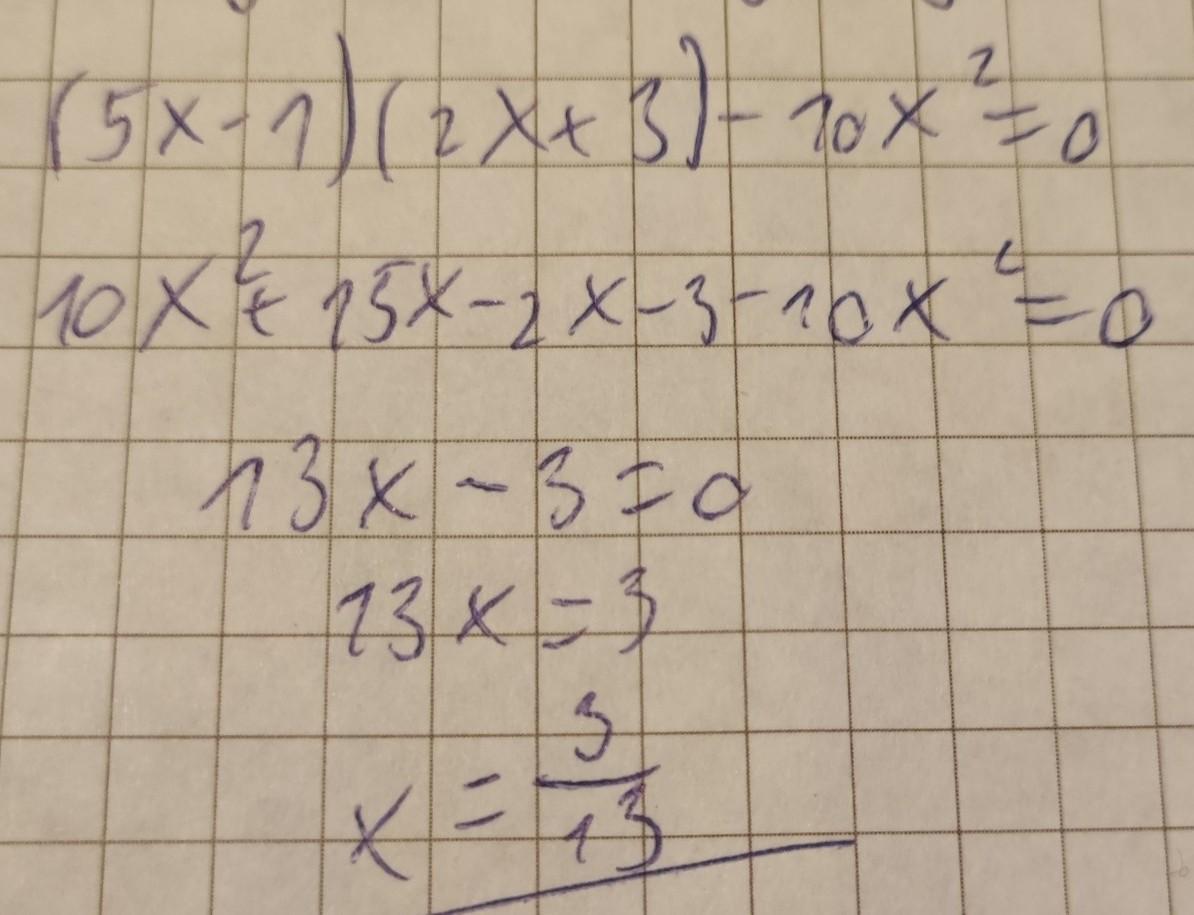 (5x-1)(2x+3)-10x²=0
10x²+15x-2x-3-10x²=0
13x-3=0
13x=3
x=3/13